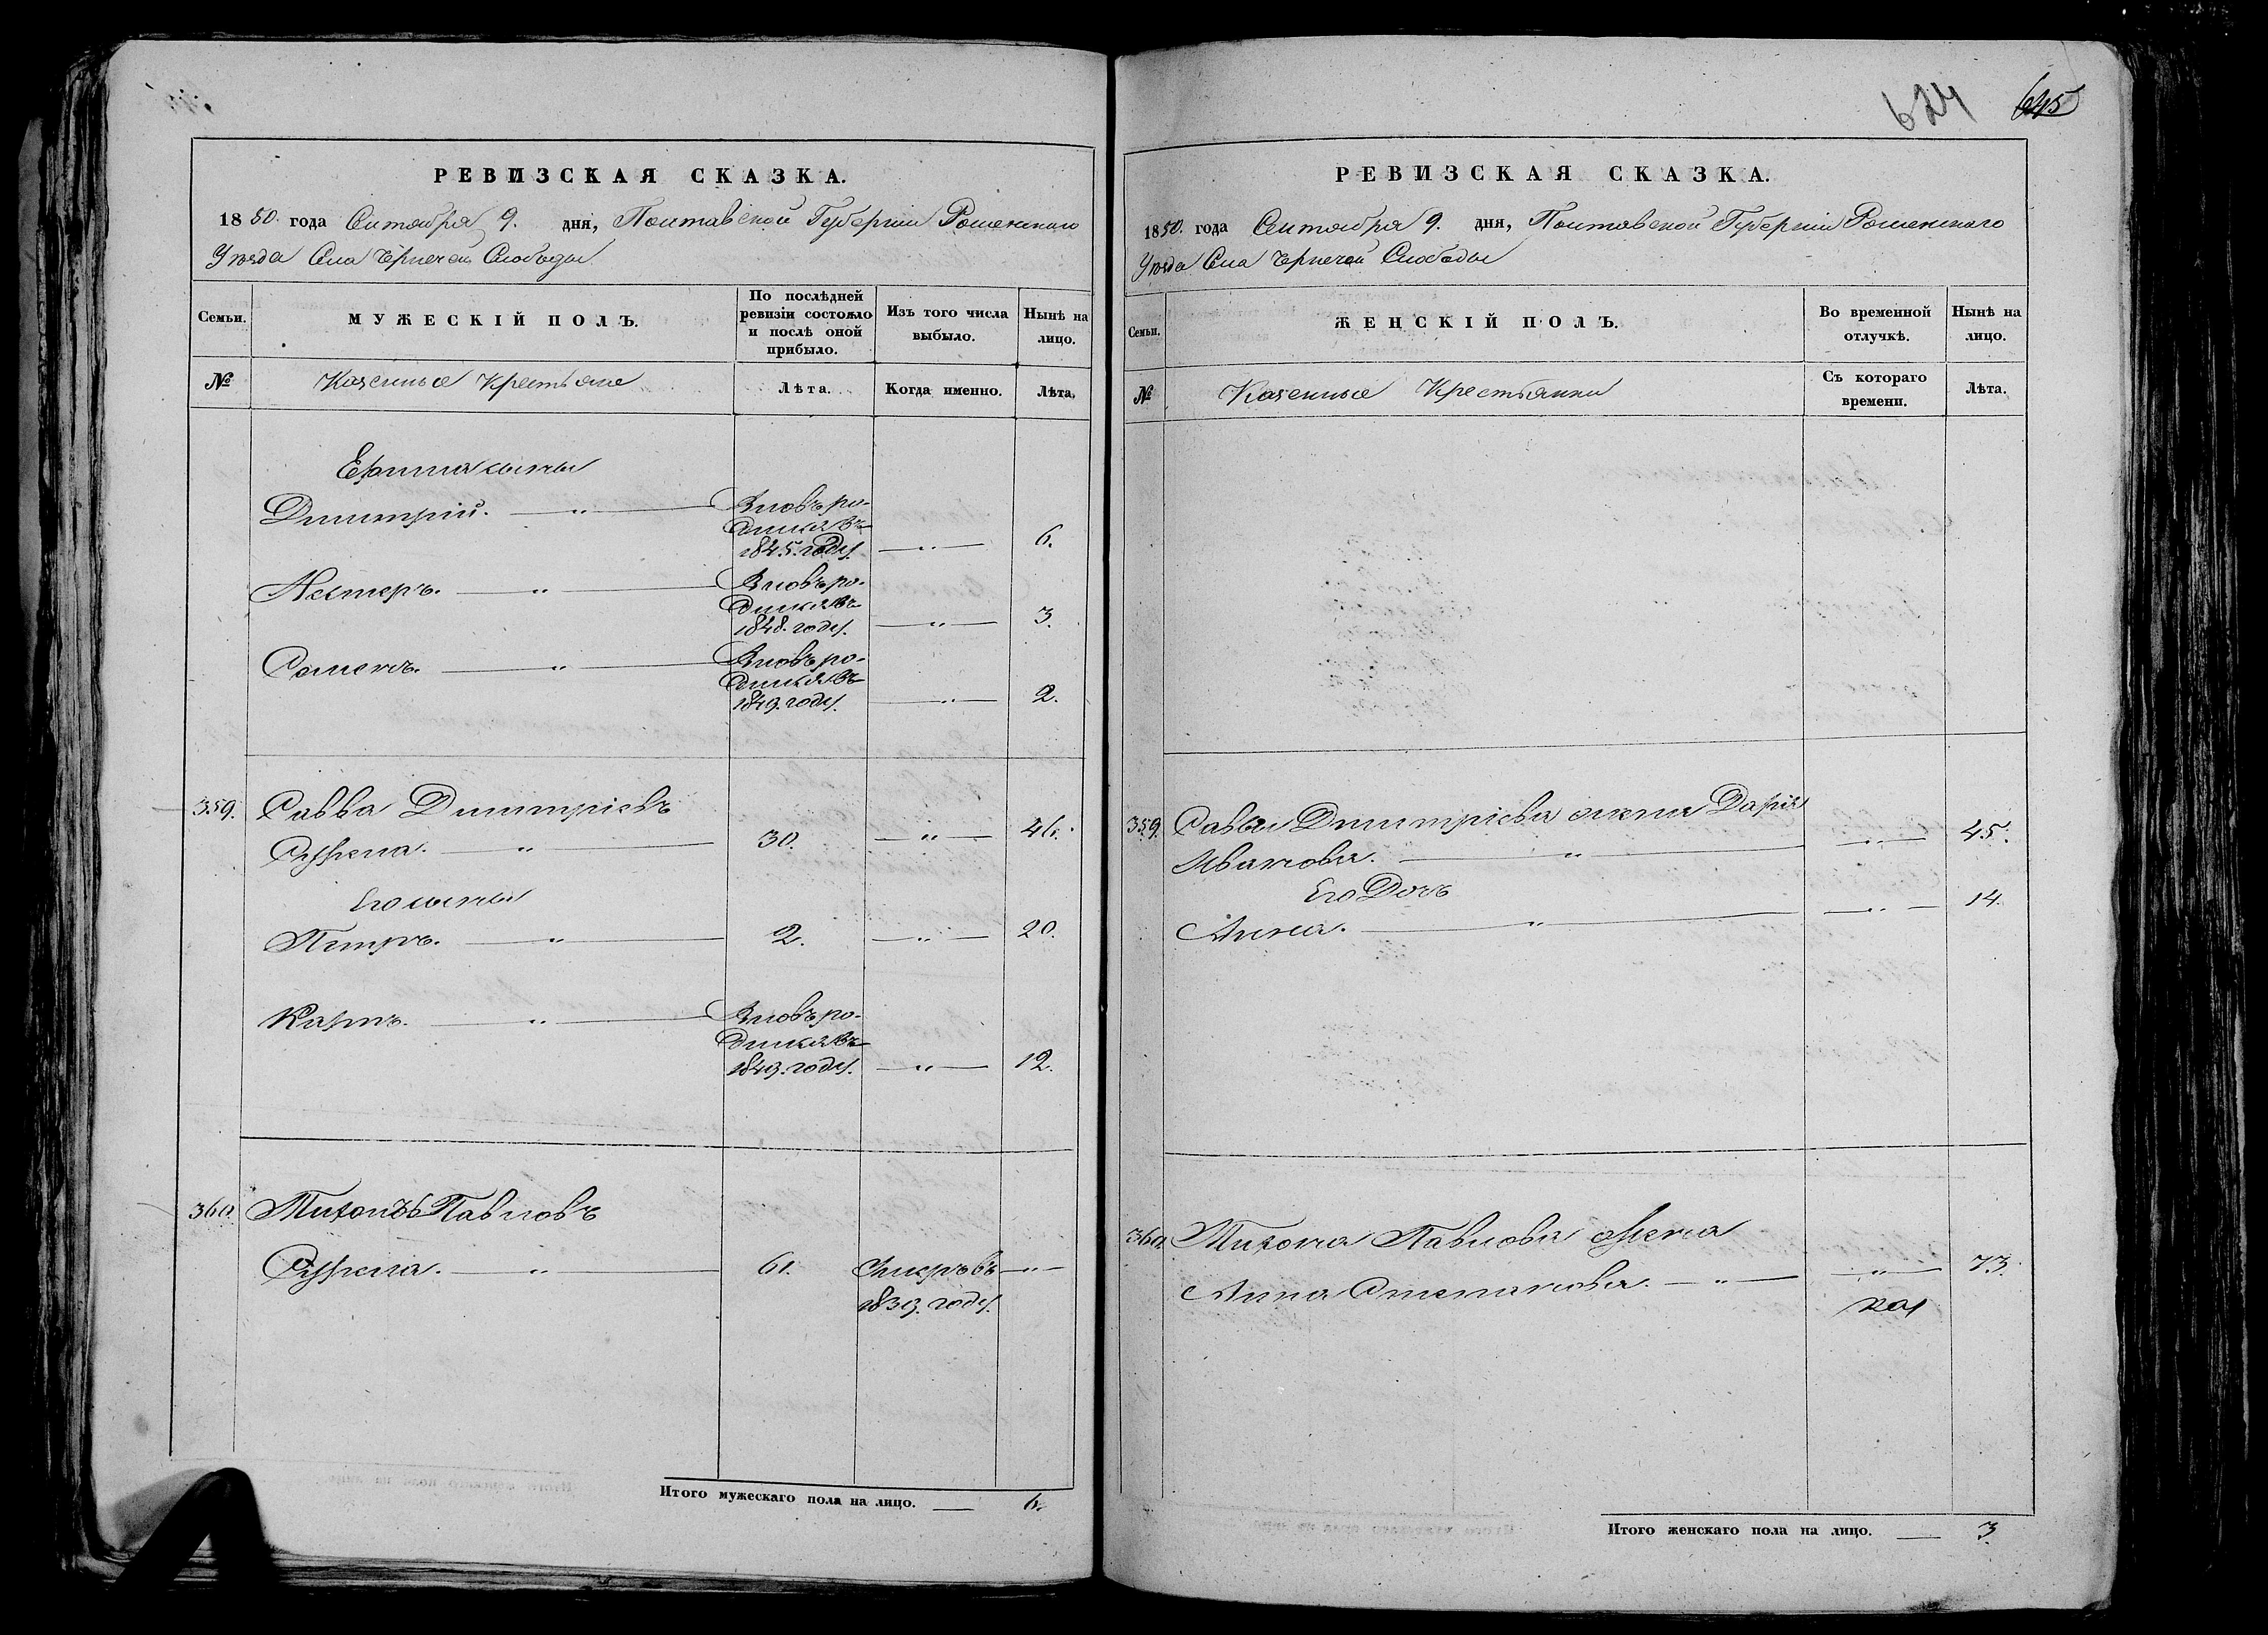 РЕВИЗСКАЯ СКАЗКА.
1850. года Сентября 9. дня, Полтавской Губернии Роменскаго
Уѣзда Села Чернечей Слободы
Семьи.
МУЖЕСКІЙ ПОЛЪ.
По послѣдней ревизіи состояло и послѣ оной прибыло.
Изъ того числа выбыло.
Нынѣ на лицо.
№
Казенные Крестьяне
Лѣта.
Когда именно.
Лѣта.
сыны
Димитрій. — " — Вновь ро-
дился въ
1845. году. — " — 6.
Нестеръ. — " — Вновь ро-
дился въ
1848. году. — " — 3.
Семенъ. — " — Вновь ро-
дился въ
1849. году. — " — 2.
359. Савва Димитріевъ
— " — 30. — " — 46.
Его сыны
Петръ. — " — 2. — " — 20.
Карпъ. — " — Вновь ро-
дился въ
1849. году. — " — 12.
360. Тихонъ Павловъ
— " — 61. Умеръ въ — " —
1839. году.
Итого мужескаго пола на лицо. — 6.
624 645
РЕВИЗСКАЯ СКАЗКА.
1850. года Сентября 9. дня, Полтавской Губернии Роменскаго
Уѣзда Села Чернечей Слободы
Семьи.
ЖЕНСКІЙ ПОЛЪ.
Во временной отлучкѣ.
Нынѣ на лицо.
№
Казенные Крестьянки
Съ котораго времени.
Лѣта.
359. Саввы Димитріева жена Дарія
Иванова. — " — — " — 45.
Его Дочь
Анна. — " — — " — 14.
360. Тихона Павлова жена
Анна Степанова. — " — — " — 73.
Итого женскаго пола на лицо. — 3.